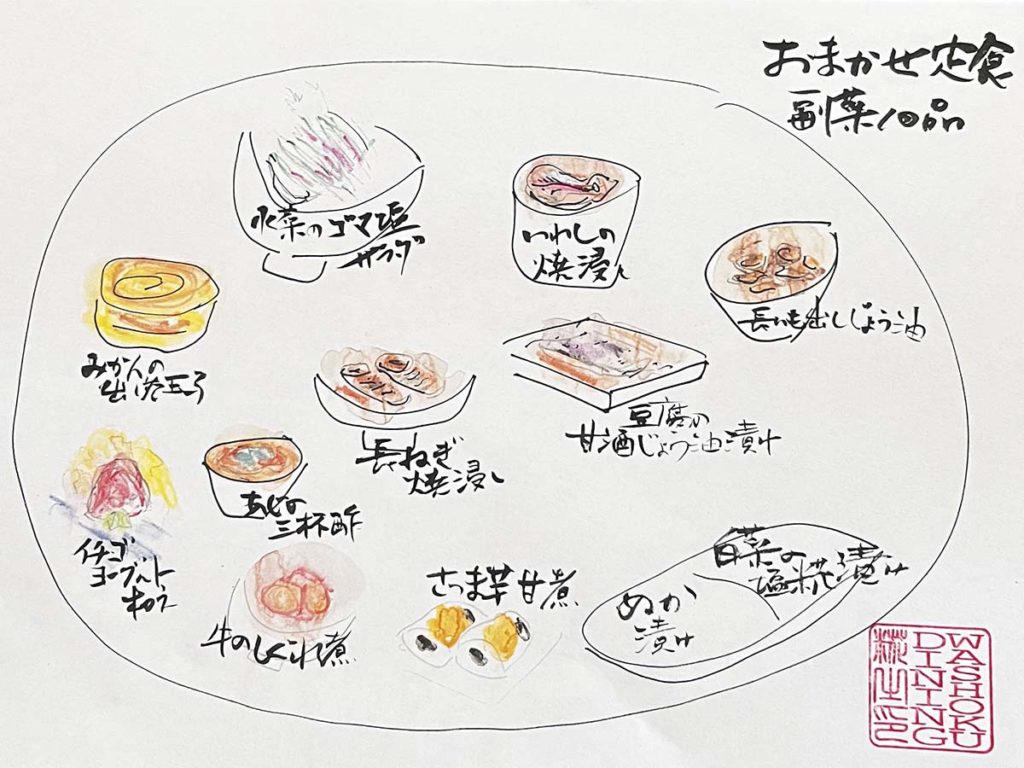 おまかせ定食
副菜10品
水菜のゴマ塩
サラダ
いわしの
焼浸し
長いも出しじょう油
みかんの
出し巻玉子
長ねぎ
焼浸し
豆腐の
甘酒じょう油漬け
三杯酢
イチゴ
ヨーグルト
牛のしぐれ煮
さつま芋甘煮
白菜の
塩糀漬け
ぬか
漬け
WASHOKU
DINING